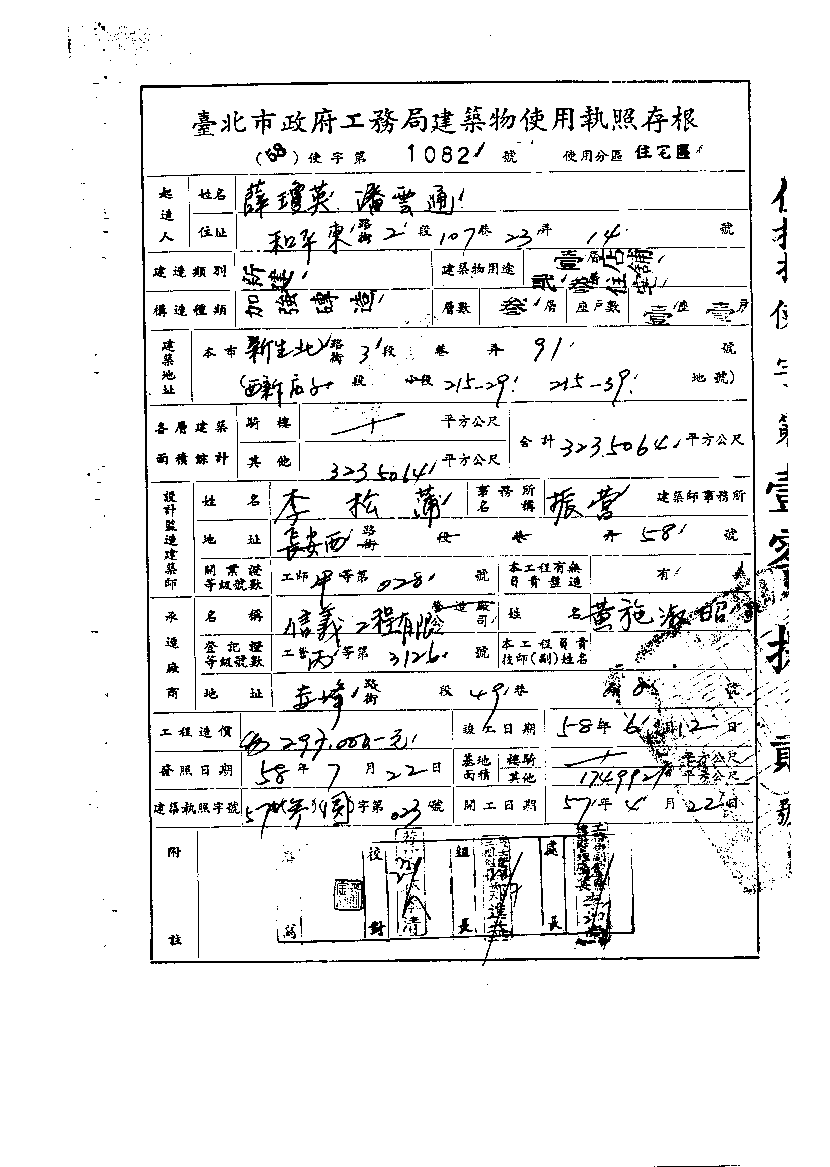 臺北市政府工務局建築物使用執照存根
(58)使字第 1082 號 使用分區 住宅區
起造人 姓名 薛瓊英 潘雲通
住址 和平東路街 2 段 107 巷 23 弄 14 號
建造類別 新建 建築物用途 壹層店舖 住宅
構造種類 加強磚造 層數 叁層 座戶數 壹座 壹戶
建築地址 本市 新生北路街 3 段 巷弄 91 號
(西新庄子 段 小段 215-29 215-39 地號)
各層建築面積餘計 騎樓 平方公尺 合計 323.5064 平方公尺
其他 323.5064 平方公尺
設計監造建築師 姓名 李松蒲 事務所名稱 振營 建築師事務所
地址 長安西路街 段巷弄 58 號
開業證等級號數 工師甲等第 028 號 本工程有無負責監造 有 無
承造廠商 名稱 信義工程有限公司 營造廠 姓名 黃施淑昭
登記證等級號數 工營丙等第 3126 號 本工程負責技師(副)姓名
地址 赤峰路街 段 49 巷 弄 8 號
工程造價 297,000-元 竣工日期 58年6月12日
發照日期 58年7月22日 基地面積 樓騎 平方公尺
其他 174.992 平方公尺
建築執照字號 57 字第 023 號 開工日期 57年4月22日
附註 校對 組長 處長